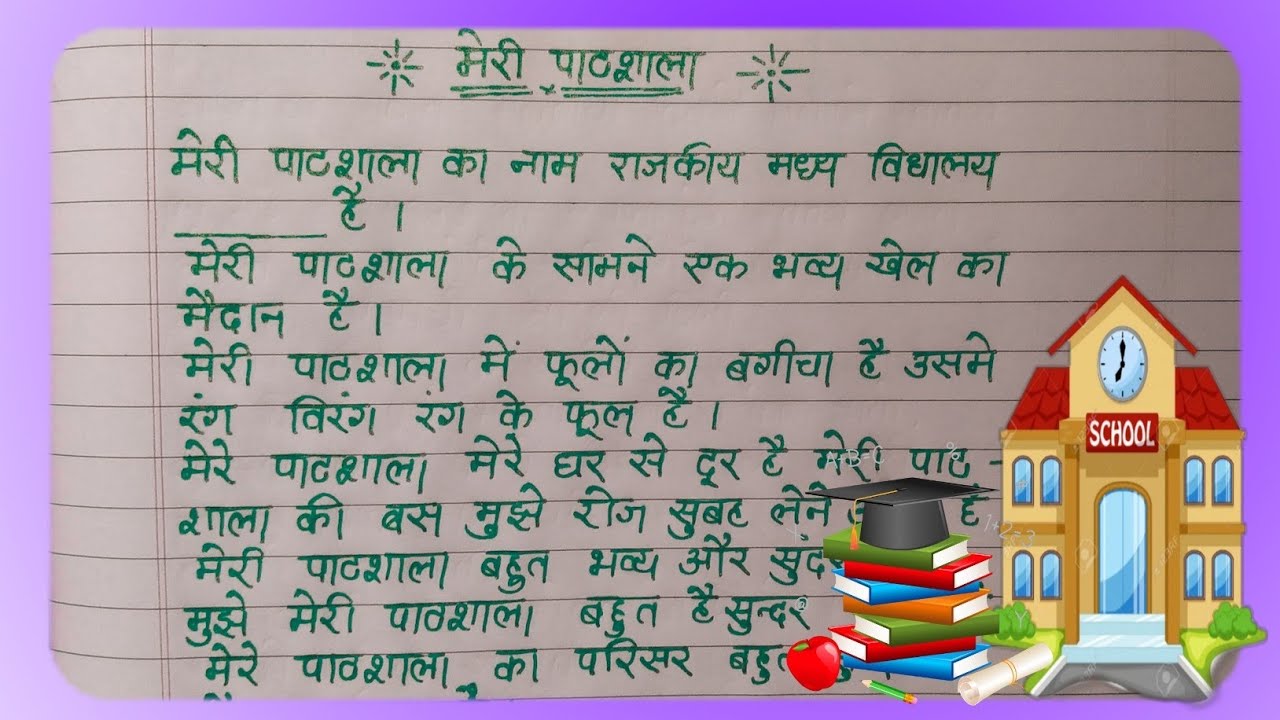 मेरी पाठशाला
मेरी पाठशाला का नाम राजकीय मध्य विधालय
________ है ।
मेरी पाठशाला के सामने एक भव्य खेल का
मैदान है ।
मेरी पाठशाला में फूलों का बगीचा है उसमे
रंग विरंग रंग के फूल है ।
मेरे पाठशाला मेरे घर से दूर है मेरी पाठ -
शाला की बस मुझे रोज सुबह लेने है
मेरी पाठशाला बहुत भव्य और
मुझे मेरी पाठशाला बहुत है सुन्दर
मेरे पाठशाला का परिसर बहुत
SCHOOL
A+B=C
1+2=3